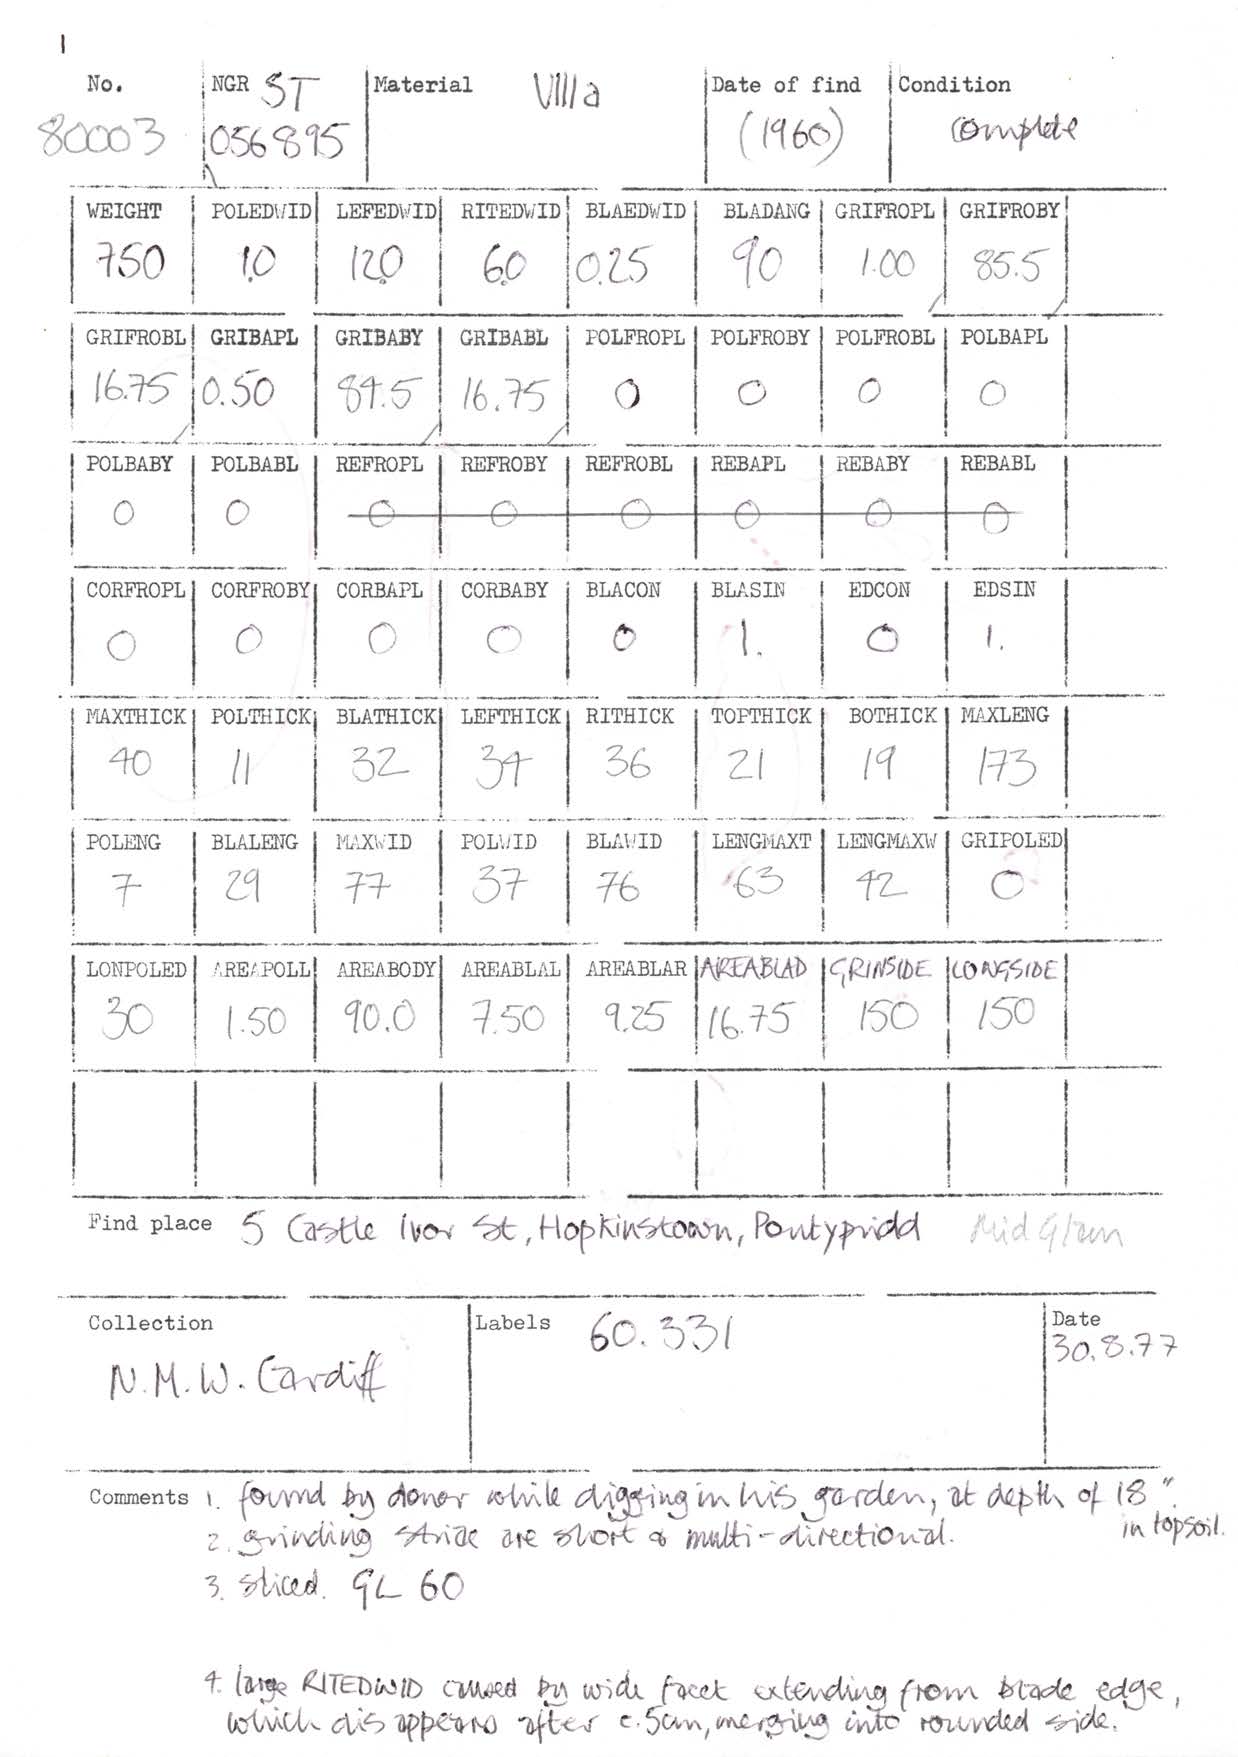 1
No. NGR ST Material VIIIa Date of find Condition
80003 056895 (1960) complete
WEIGHT POLEDWID LEFEDWID RITEDWID BLAEDWID BLADANG GRIFROPL GRIFROBY
750 1.0 12.0 6.0 0.25 90 1.00 85.5
GRIFROBL GRIBAPL GRIBABY GRIBABL POLFROPL POLFROBY POLFROBL POLBAPL
16.75 0.50 84.5 16.75 0 0 0 0
POLBABY POLBABL REFROPL REFROBY REFROBL REBAPL REBABY REBABL
0 0 0 0 0 0 0 0
CORFROPL CORFROBY CORBAPL CORBABY BLACON BLASIN EDCON EDSIN
0 0 0 0 0 1. 0 1.
MAXTHICK POLTHICK BLATHICK LEFTHICK RITHICK TOPTHICK BOTHICK MAXLENG
40 11 32 34 36 21 19 173
POLENG BLALENG MAXWID POLWID BLAWID LENGMAXT LENGMAXW GRIPOLED
7 29 77 37 76 63 42 0
LONPOLED AREAPOLL AREABODY AREABLAL AREABLAR AREABLAD GRINSIDE LONGSIDE
30 1.50 90.0 7.50 9.25 16.75 150 150
Find place 5 Castle Ivor St, Hopkinstown, Pontypridd Mid Glam
Collection Labels 60.331 Date
N.M.W. Cardiff 30.8.77
Comments 1. found by donor while digging in his garden, at depth of 18"
in topsoil.
2. grinding striae are short & multi-directional.
3. sliced. GL 60
4. large RITEDWID caused by wide facet extending from blade edge,
which disappears after c.5cm, merging into rounded side.